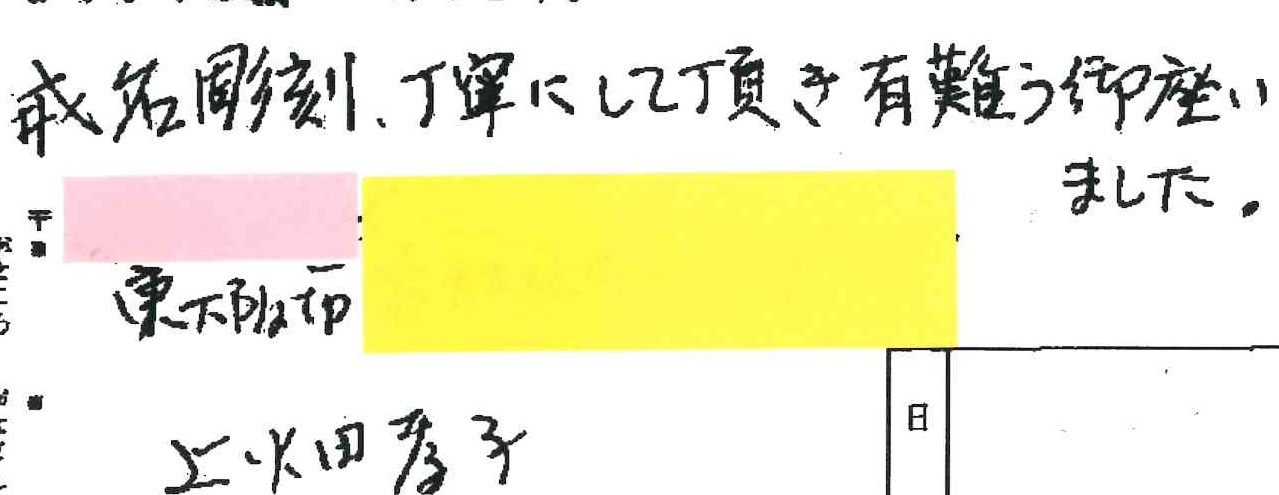 戒名彫刻、丁寧にして頂き有難う御座い
ました。
〒
東大阪市
上畑田孝子
日